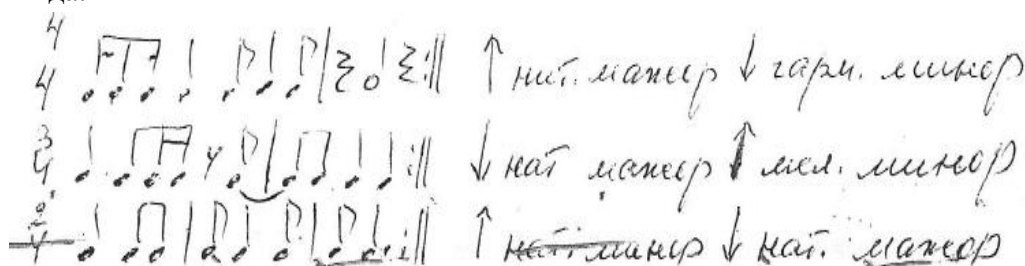 4/4 ↑ нат. мажор ↓ гарм. минор
3/4 ↓ нат мажор ↑ мел. минор
2/4 ↑ нат минор ↓ нат. мажор